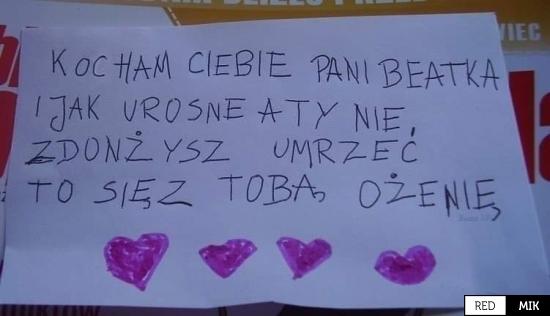 WIEC
KOCHAM CIEBIE PANI BEATKA
I JAK UROSNE A TY NIE
ZDONŻYSZ UMRZEĆ
TO SIĘZ TOBĄ OŻENIĘ
RED MIK